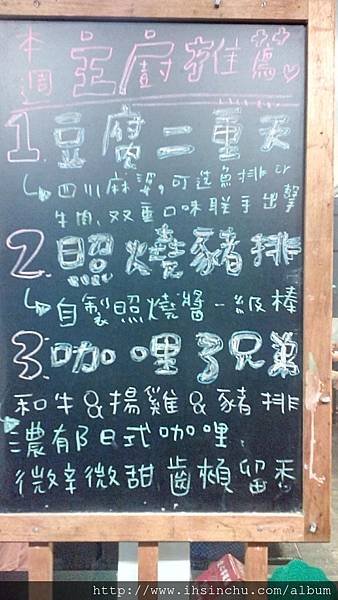 本週主廚推薦
1.豆腐二重天
四川麻婆,可选魚排or
牛肉,双重口味联手出擊
2.照燒豬排
自製照燒醬一級棒
3.咖哩3兄弟
和牛&揚雞&豬排
濃郁日式咖哩,
微辛微甜 齒頰留香
http://www.ihsinchu.com/album